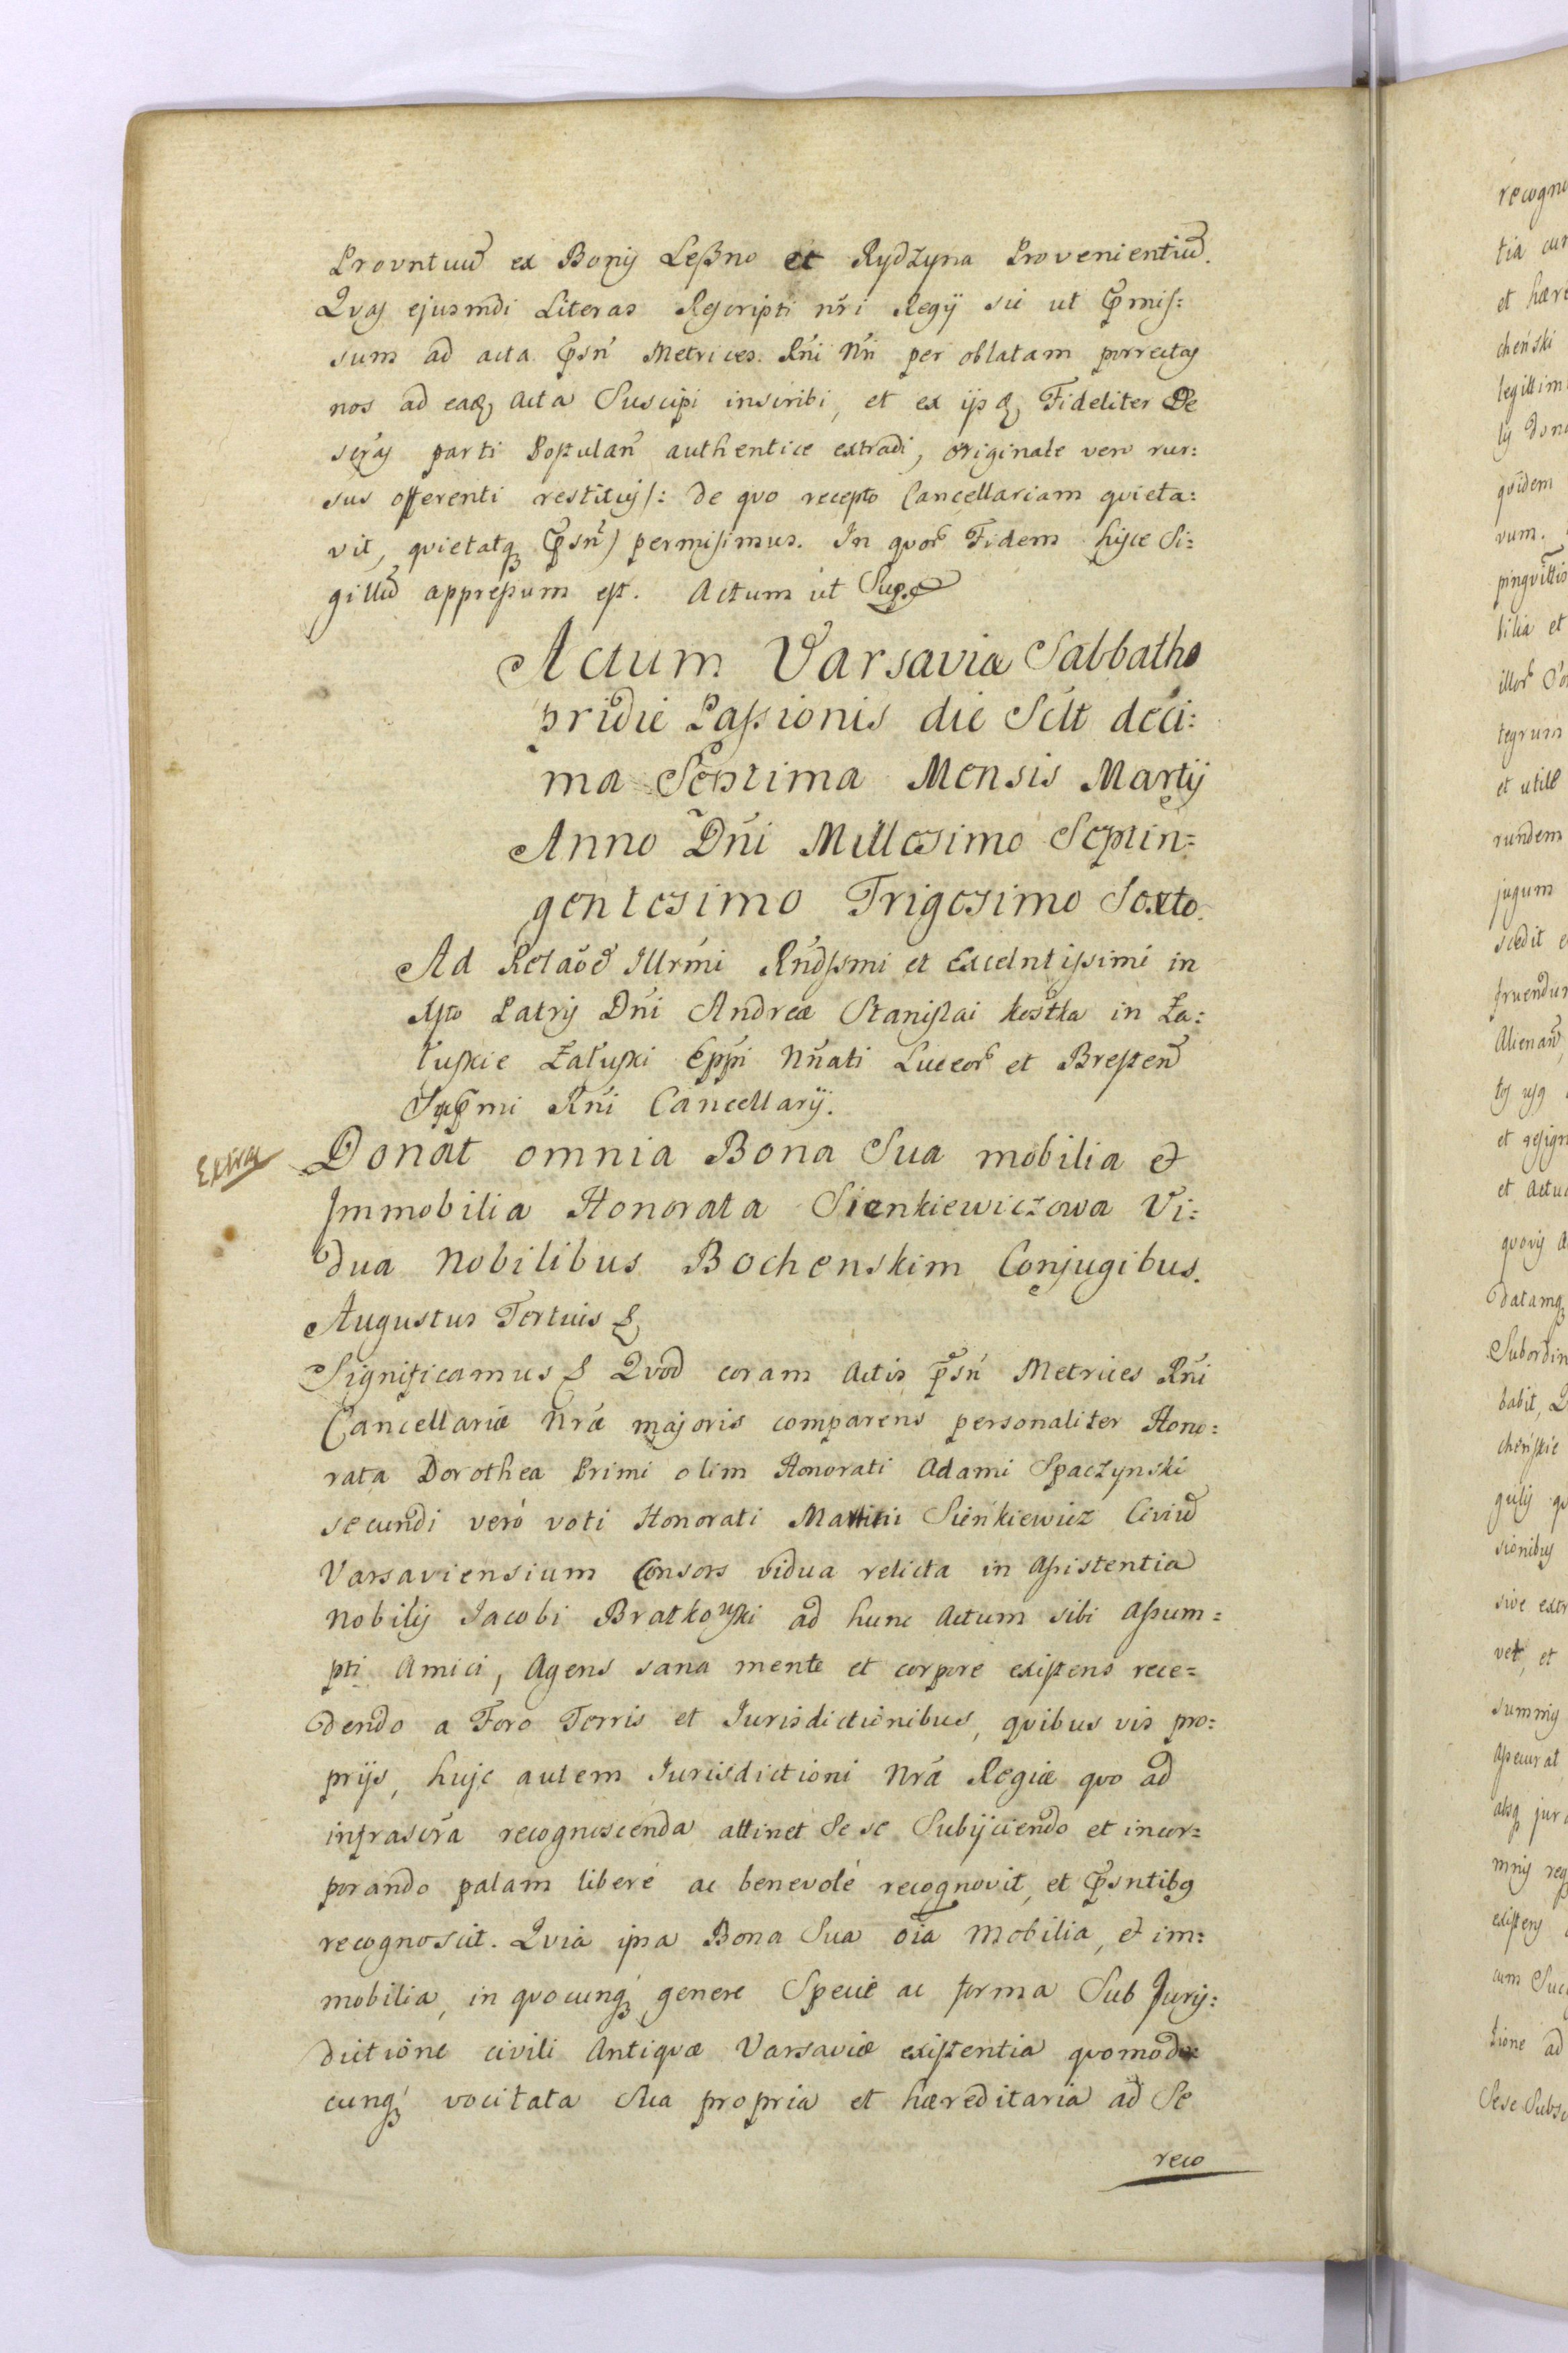 Provntuum ex Bonis Leßno et Rydzyna Provenientium.
Qvas ejusmdi Literas Rescripti nri Regij sic ut Pmis:
sum ad acta Psn Metrices Rni Nri per oblatam porrectas
nos ad eadq Acta Suscipi inscribi, et ex ijsdq Fideliter De
scras parti Postulan authentice extradi, originale vero rur:
sus offerenti restitui /: de qvo recepto Cancellariam qvieta:
vit, qvietatq Psnt) permisimus. In qvor Fidem hisce Si:
gillum appressum est. Actum ut Supra
Actum Varsaviæ Sabbatho
pridie Passionis die Sclt deci:
ma Septima Mensis Martij
Anno Dni Millesimo Septin=
gentesimo Trigesimo Sexto.
Ad Relaoem Illrmi Rndssmi et Excelntissimi in
Xsto Patris Dni Andreæ Stanislai Kostka in Za:
łuskie Załuski Eppi Nnati Luceor et Bresten
Supmi Rni Cancellarij.
Extra
Donat omnia Bona Sua mobilia et
Immobilia Honorata Sienkiewiczowa Vi:
dua Nobilibus Bochenskim Conjugibus.
Augustus Tertius &
Significamus & Qvod coram Actis psn Metrices Rni
Cancellariæ Nræ majoris comparens personaliter Hono:
rata Dorothea Primi olim Honorati Adami Spaczynski
secundi veró voti Honorati Sieńkiewicz Civium
Varsaviensium Consors vidua relicta in Assistentia
Nobilis Jacobi Bratkowski ad hunc Actum sibi Assum=
pti Amici, Agens sana mente et corpore existens rece=
dendo a Foro Terris et Jurisdictionibus, qvibus vis pro:
prijs, huic autem Jurisdictioni Nræ Regiæ qvo ad
infrascra recognoscenda attinet Se se Subijciendo et incor=
porando palam liberé ac benevolé recognovit, et Psntibq
recognoscit. Qvia ipsa Bona Sua oia Mobilia, et im:
mobilia, in qvocunq genere Specie ac forma Sub Juris:
dictione civili Antiqvæ Varsaviæ existentia qvomodo
cunq vocitata Sua propria et hæreditaria ad Se
reco
recogno
tia cum
et hære
cheński
legittim
lis dona
qvidem
vum.
pingvi
bilia et
illor
tegrum
et utile
rundem
jugum
scedit e
fruendum
Alienan
tos usq
et resign
et Actua
qvovis a
datamq
Subordin
babit, Q
cheńskie
gulis qv
sionibus
sive extr
vet, et
summis
Assecurat
absq jur
mnis req
existens
cum Suc
tione ad
Sese Subsc